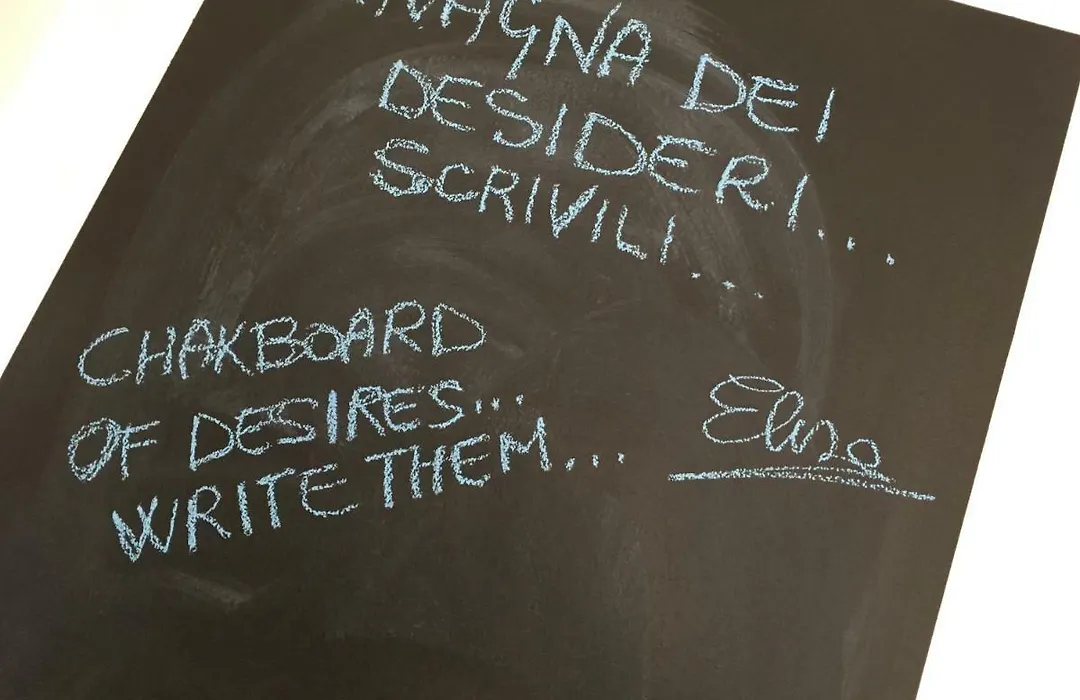 DEI
DESIDERI...
SCRIVILI...
CHAKBOARD
OF DESIRES...
WRITE THEM...
Elisa